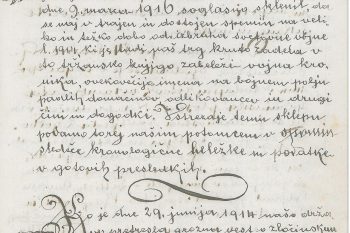 dne, 9. marca 1916 soglasno sklenil, da
se naj v trajen in dostojen spomin na veli-
ko in težko dobo odločilne svetovne vojne
l. 1914, ki je tudi naš trg kruto zadela v
to tržansko knjigo zabeleži vojna kro-
nika, ovekovečijo imena na bojnem polju
padlih domačinov, odlikovancev in drugi
čini in dogodki. Vstrezaje temu sklepu
podamo torej našim potomcem v spomin
sledeče kronologične beležke in podatke
v gotovih presledkih.
Ko je dne 29. junija 1914 našo drža-
vo pretresla grozna vest o zločinskem